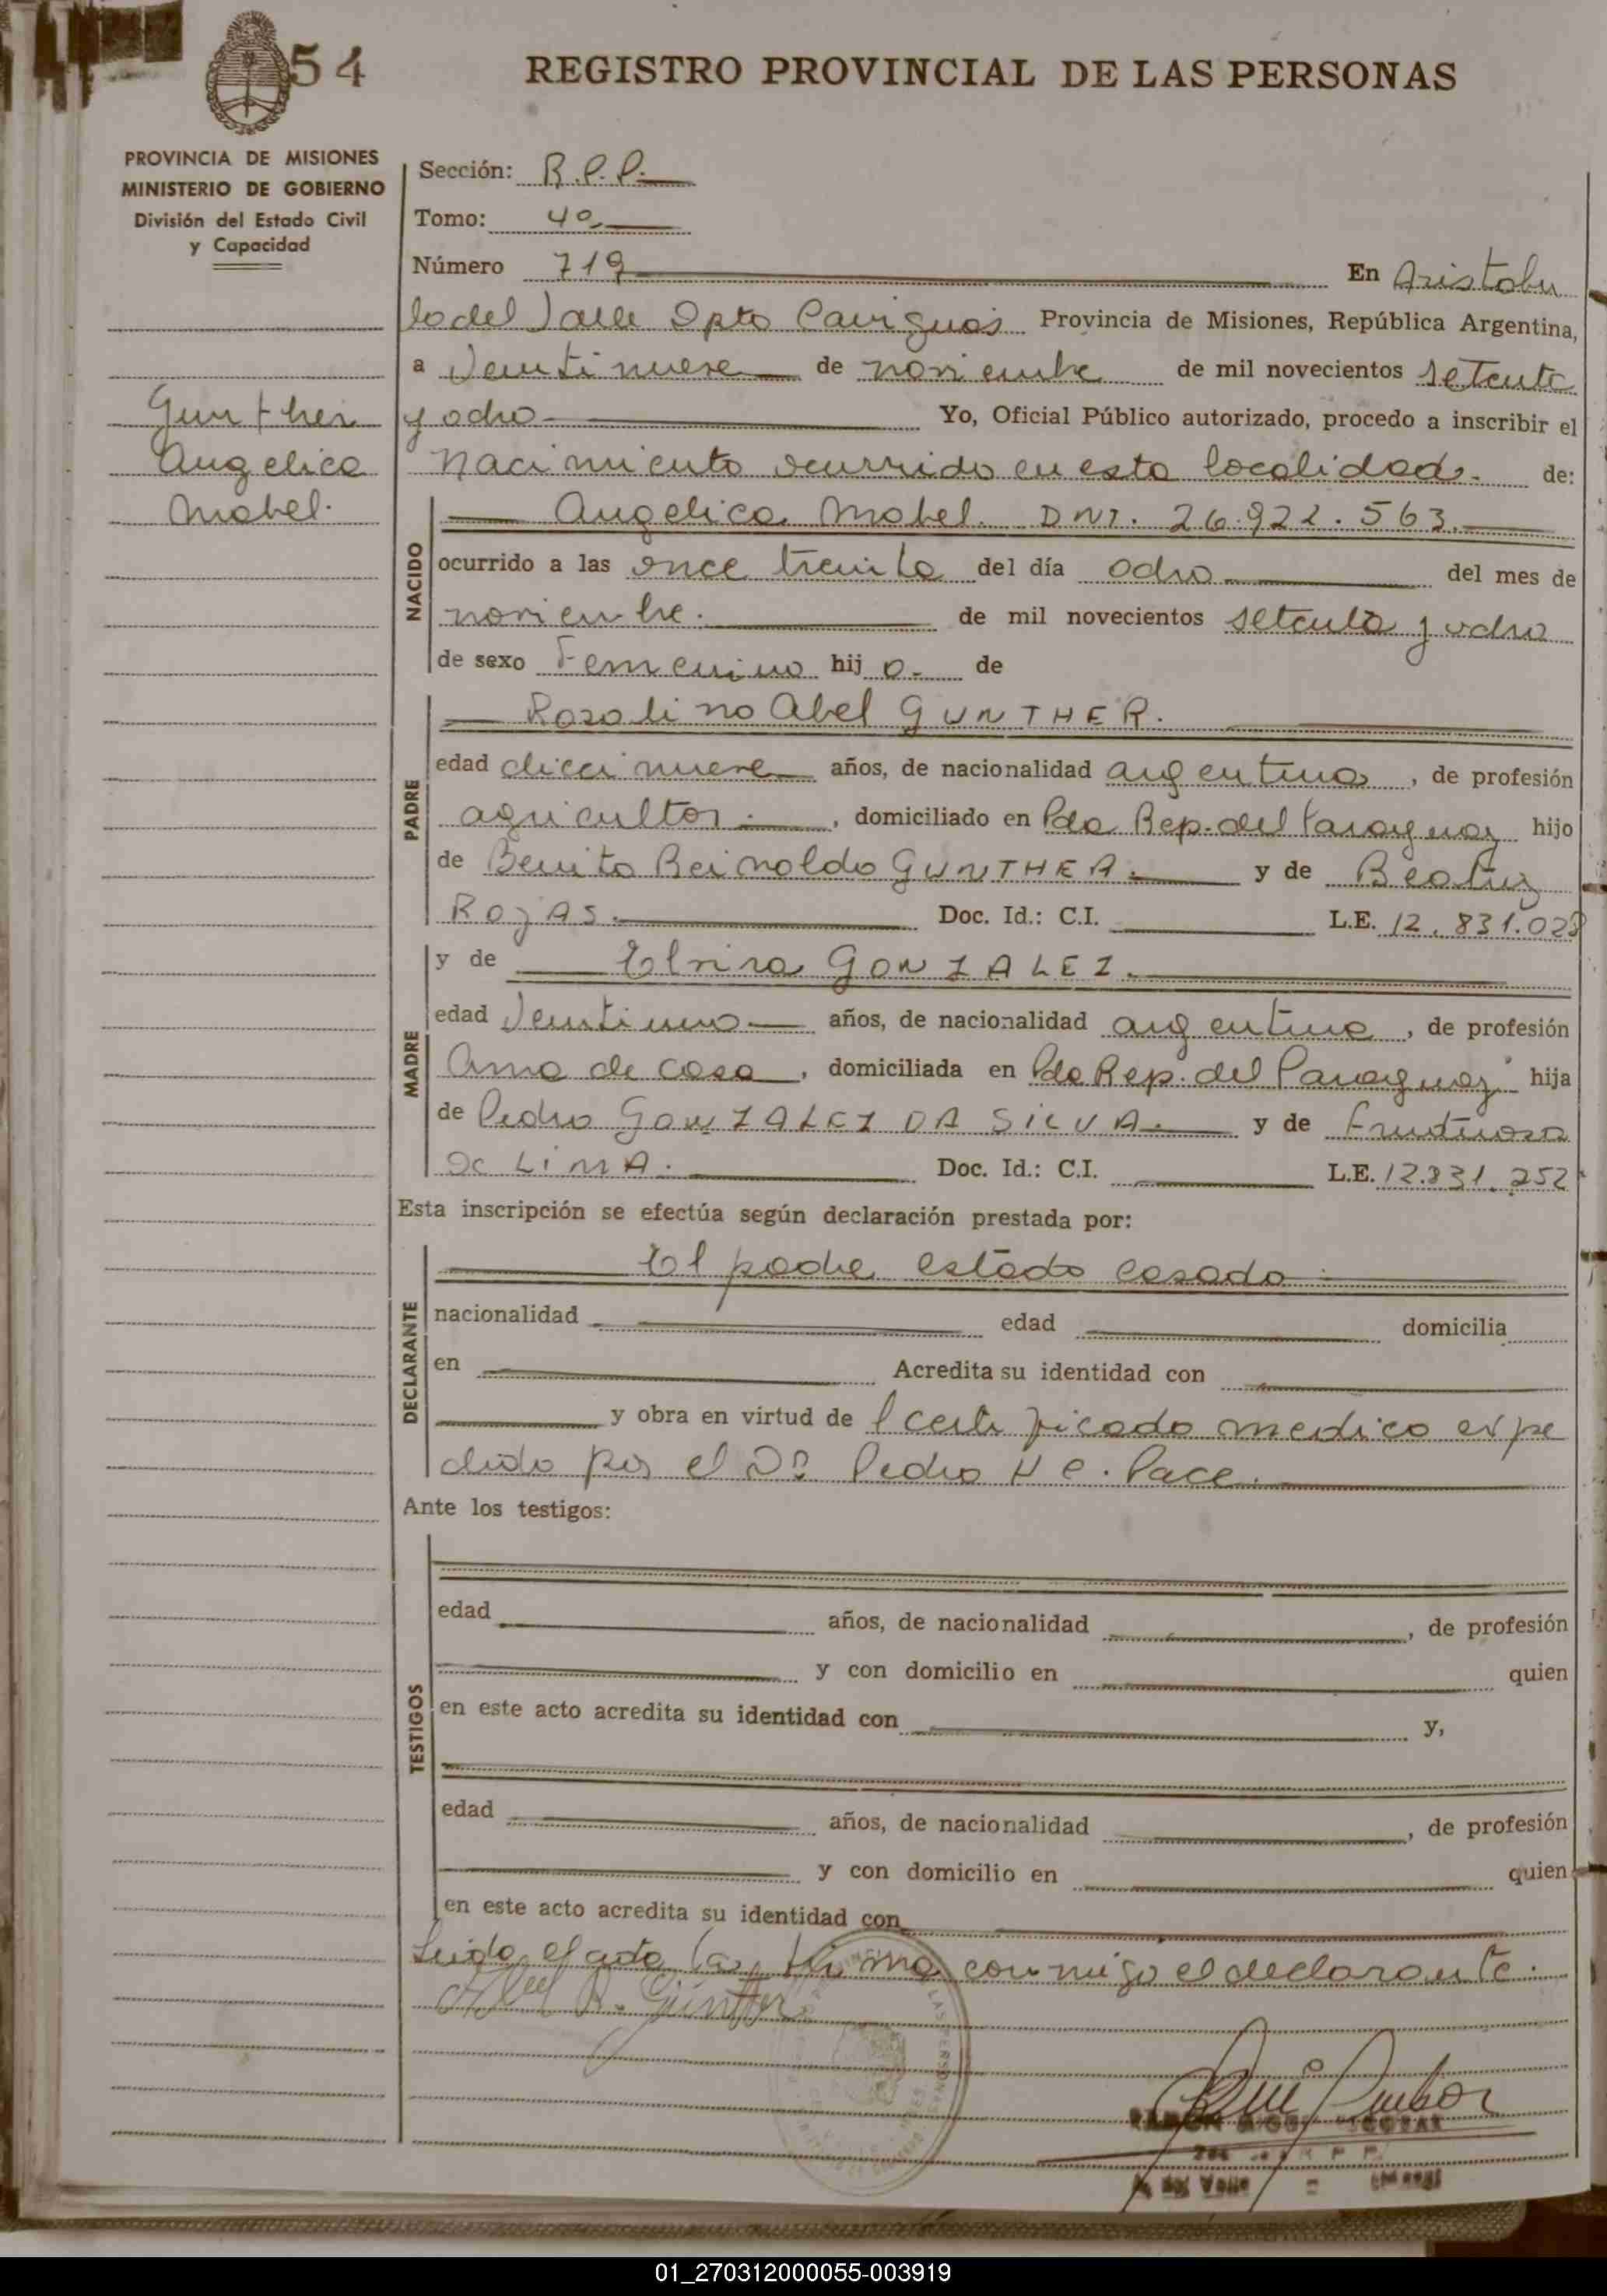 54
REGISTRO PROVINCIAL DE LAS PERSONAS
PROVINCIA DE MISIONES
MINISTERIO DE GOBIERNO
División del Estado Civil
y Capacidad
Gunther
Angelica
Mabel.
Sección: R.P.P.
Tomo: 4º
Número 719 En Aristobu
lo del Valle Dpto Cainguas Provincia de Misiones, República Argentina,
a Veintinueve de noviembre de mil novecientos setenta
y ocho Yo, Oficial Público autorizado, procedo a inscribir el
Nacimiento ocurrido en esta localidad. de:
NACIDO
Angelica Mabel. DNI. 26.922.563.
ocurrido a las once treinta del día ocho del mes de
noviembre. de mil novecientos setenta y ocho
de sexo Femenino hij a. de
PADRE
Rosalino Abel GUNTHER.
edad diecinueve años, de nacionalidad argentina, de profesión
agricultor., domiciliado en Pdo Rep. del Paraguay hijo
de Benito Reinoldo GUNTHER. y de Beatriz
Rojas. Doc. Id.: C.I. L.E. 12.831.028
MADRE
y de Elvira GONZALEZ.
edad Veintiuno años, de nacionalidad argentina, de profesión
Ama de casa, domiciliada en Pdo Rep. del Paraguay hija
de Pedro GONZALEZ DA SILVA. y de Fructuosa
De LIMA. Doc. Id.: C.I. L.E. 12.831.252
Esta inscripción se efectúa según declaración prestada por:
DECLARANTE
El padre estado casado.
nacionalidad edad domicilia
en Acredita su identidad con
y obra en virtud de l certificado medico expe
dido por el Dr. Pedro H C. Pace.
Ante los testigos:
TESTIGOS
edad años, de nacionalidad , de profesión
y con domicilio en quien
en este acto acredita su identidad con y,
edad años, de nacionalidad , de profesión
y con domicilio en quien
en este acto acredita su identidad con
Leida el acta la firma conmigo el declarante.
Abel R. Günther
RAMON
01_270312000055-003919